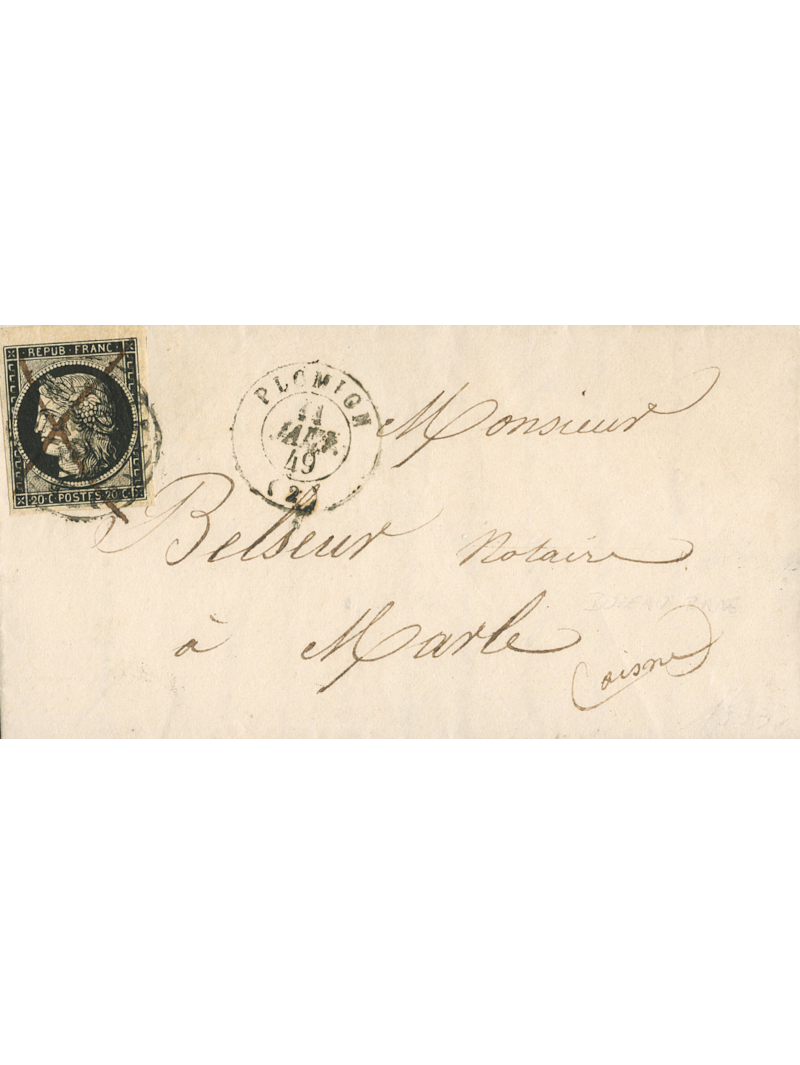 REPUB · FRANC
20·C·POSTES·20·C
PLOMIGN
11
JANV.
49
(2)
Monsieur
Belseur Notaire
à Marle
(aisne)